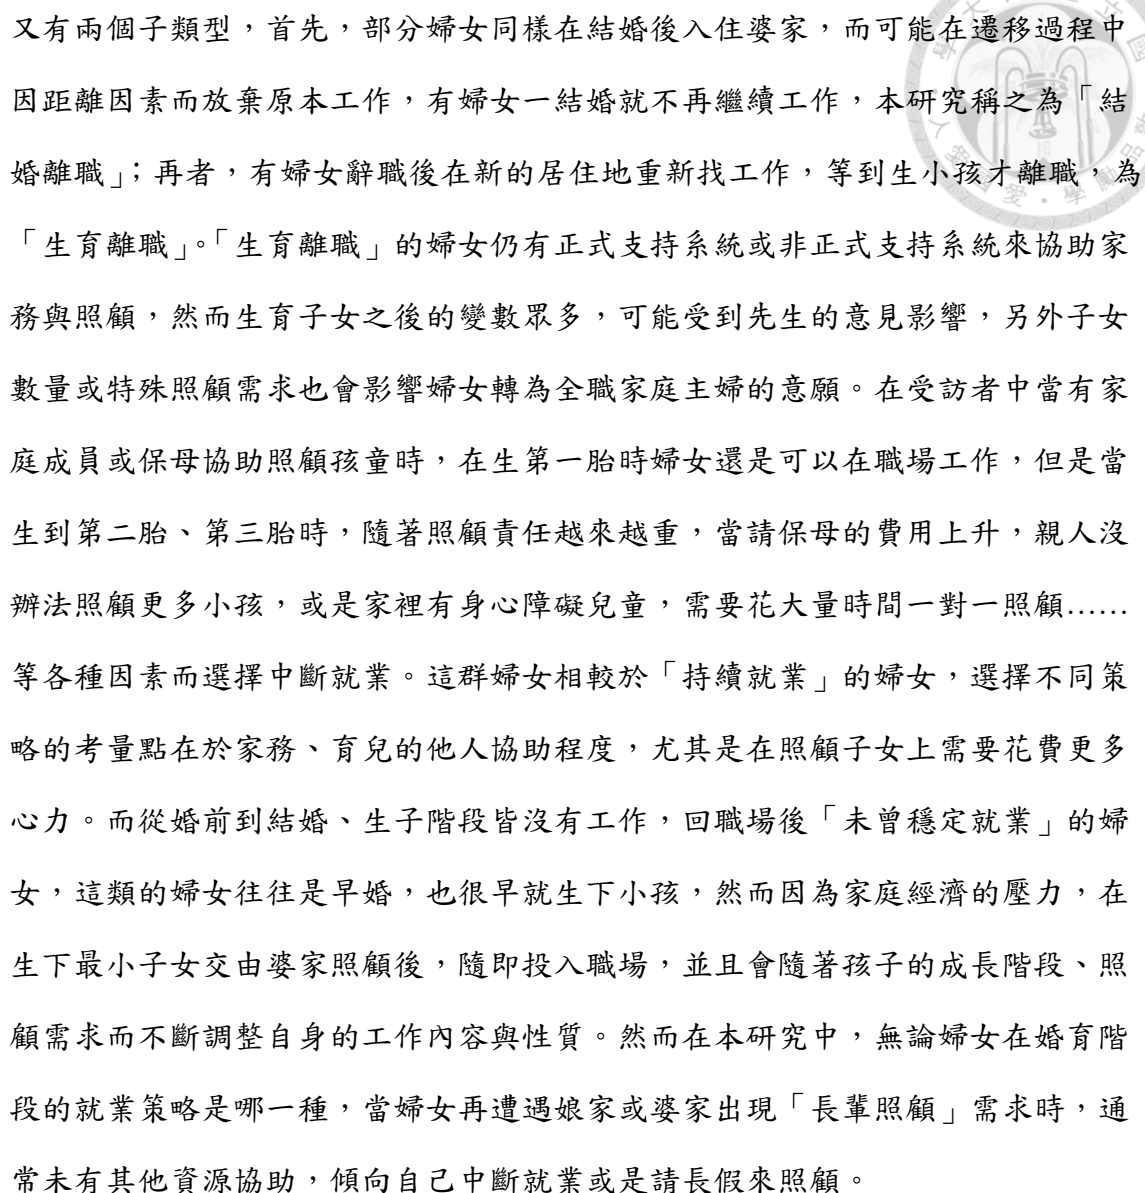 又有兩個子類型，首先，部分婦女同樣在結婚後入住婆家，而可能在遷移過程中
因距離因素而放棄原本工作，有婦女一結婚就不再繼續工作，本研究稱之為「結
婚離職」；再者，有婦女辭職後在新的居住地重新找工作，等到生小孩才離職，為
「生育離職」。「生育離職」的婦女仍有正式支持系統或非正式支持系統來協助家
務與照顧，然而生育子女之後的變數眾多，可能受到先生的意見影響，另外子女
數量或特殊照顧需求也會影響婦女轉為全職家庭主婦的意願。在受訪者中當有家
庭成員或保母協助照顧孩童時，在生第一胎時婦女還是可以在職場工作，但是當
生到第二胎、第三胎時，隨著照顧責任越來越重，當請保母的費用上升，親人沒
辦法照顧更多小孩，或是家裡有身心障礙兒童，需要花大量時間一對一照顧……
等各種因素而選擇中斷就業。這群婦女相較於「持續就業」的婦女，選擇不同策
略的考量點在於家務、育兒的他人協助程度，尤其是在照顧子女上需要花費更多
心力。而從婚前到結婚、生子階段皆沒有工作，回職場後「未曾穩定就業」的婦
女，這類的婦女往往是早婚，也很早就生下小孩，然而因為家庭經濟的壓力，在
生下最小子女交由婆家照顧後，隨即投入職場，並且會隨著孩子的成長階段、照
顧需求而不斷調整自身的工作內容與性質。然而在本研究中，無論婦女在婚育階
段的就業策略是哪一種，當婦女再遭遇娘家或婆家出現「長輩照顧」需求時，通
常未有其他資源協助，傾向自己中斷就業或是請長假來照顧。